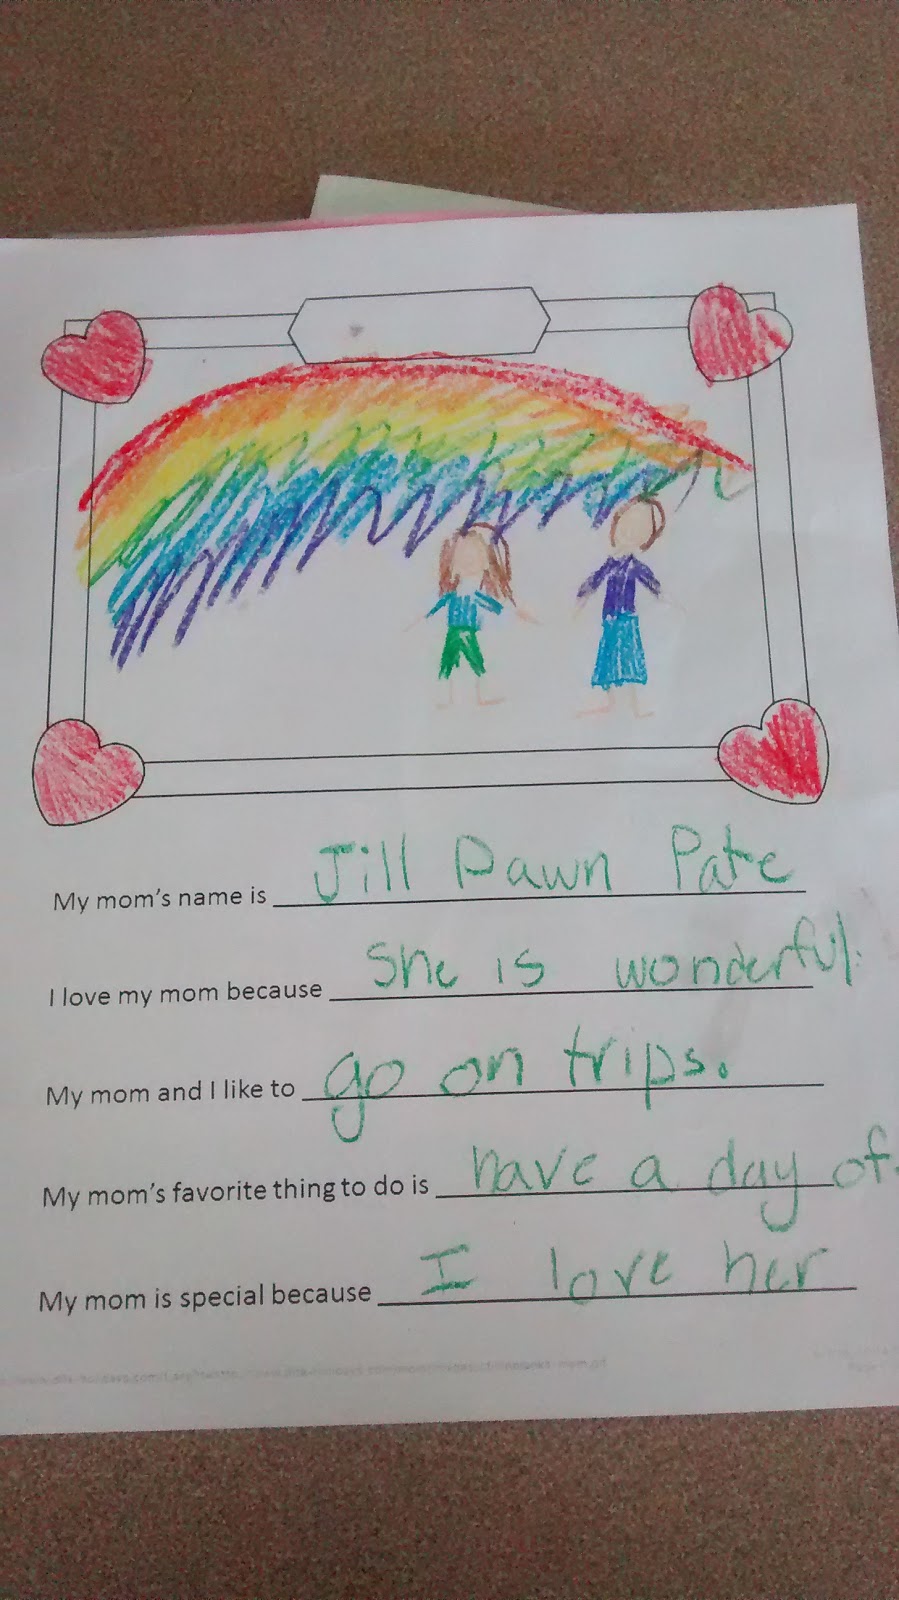 My mom's name is Jill Dawn Pate
I love my mom because She is wonderful.
My mom and I like to go on trips.
My mom's favorite thing to do is have a day of.
My mom is special because I love her